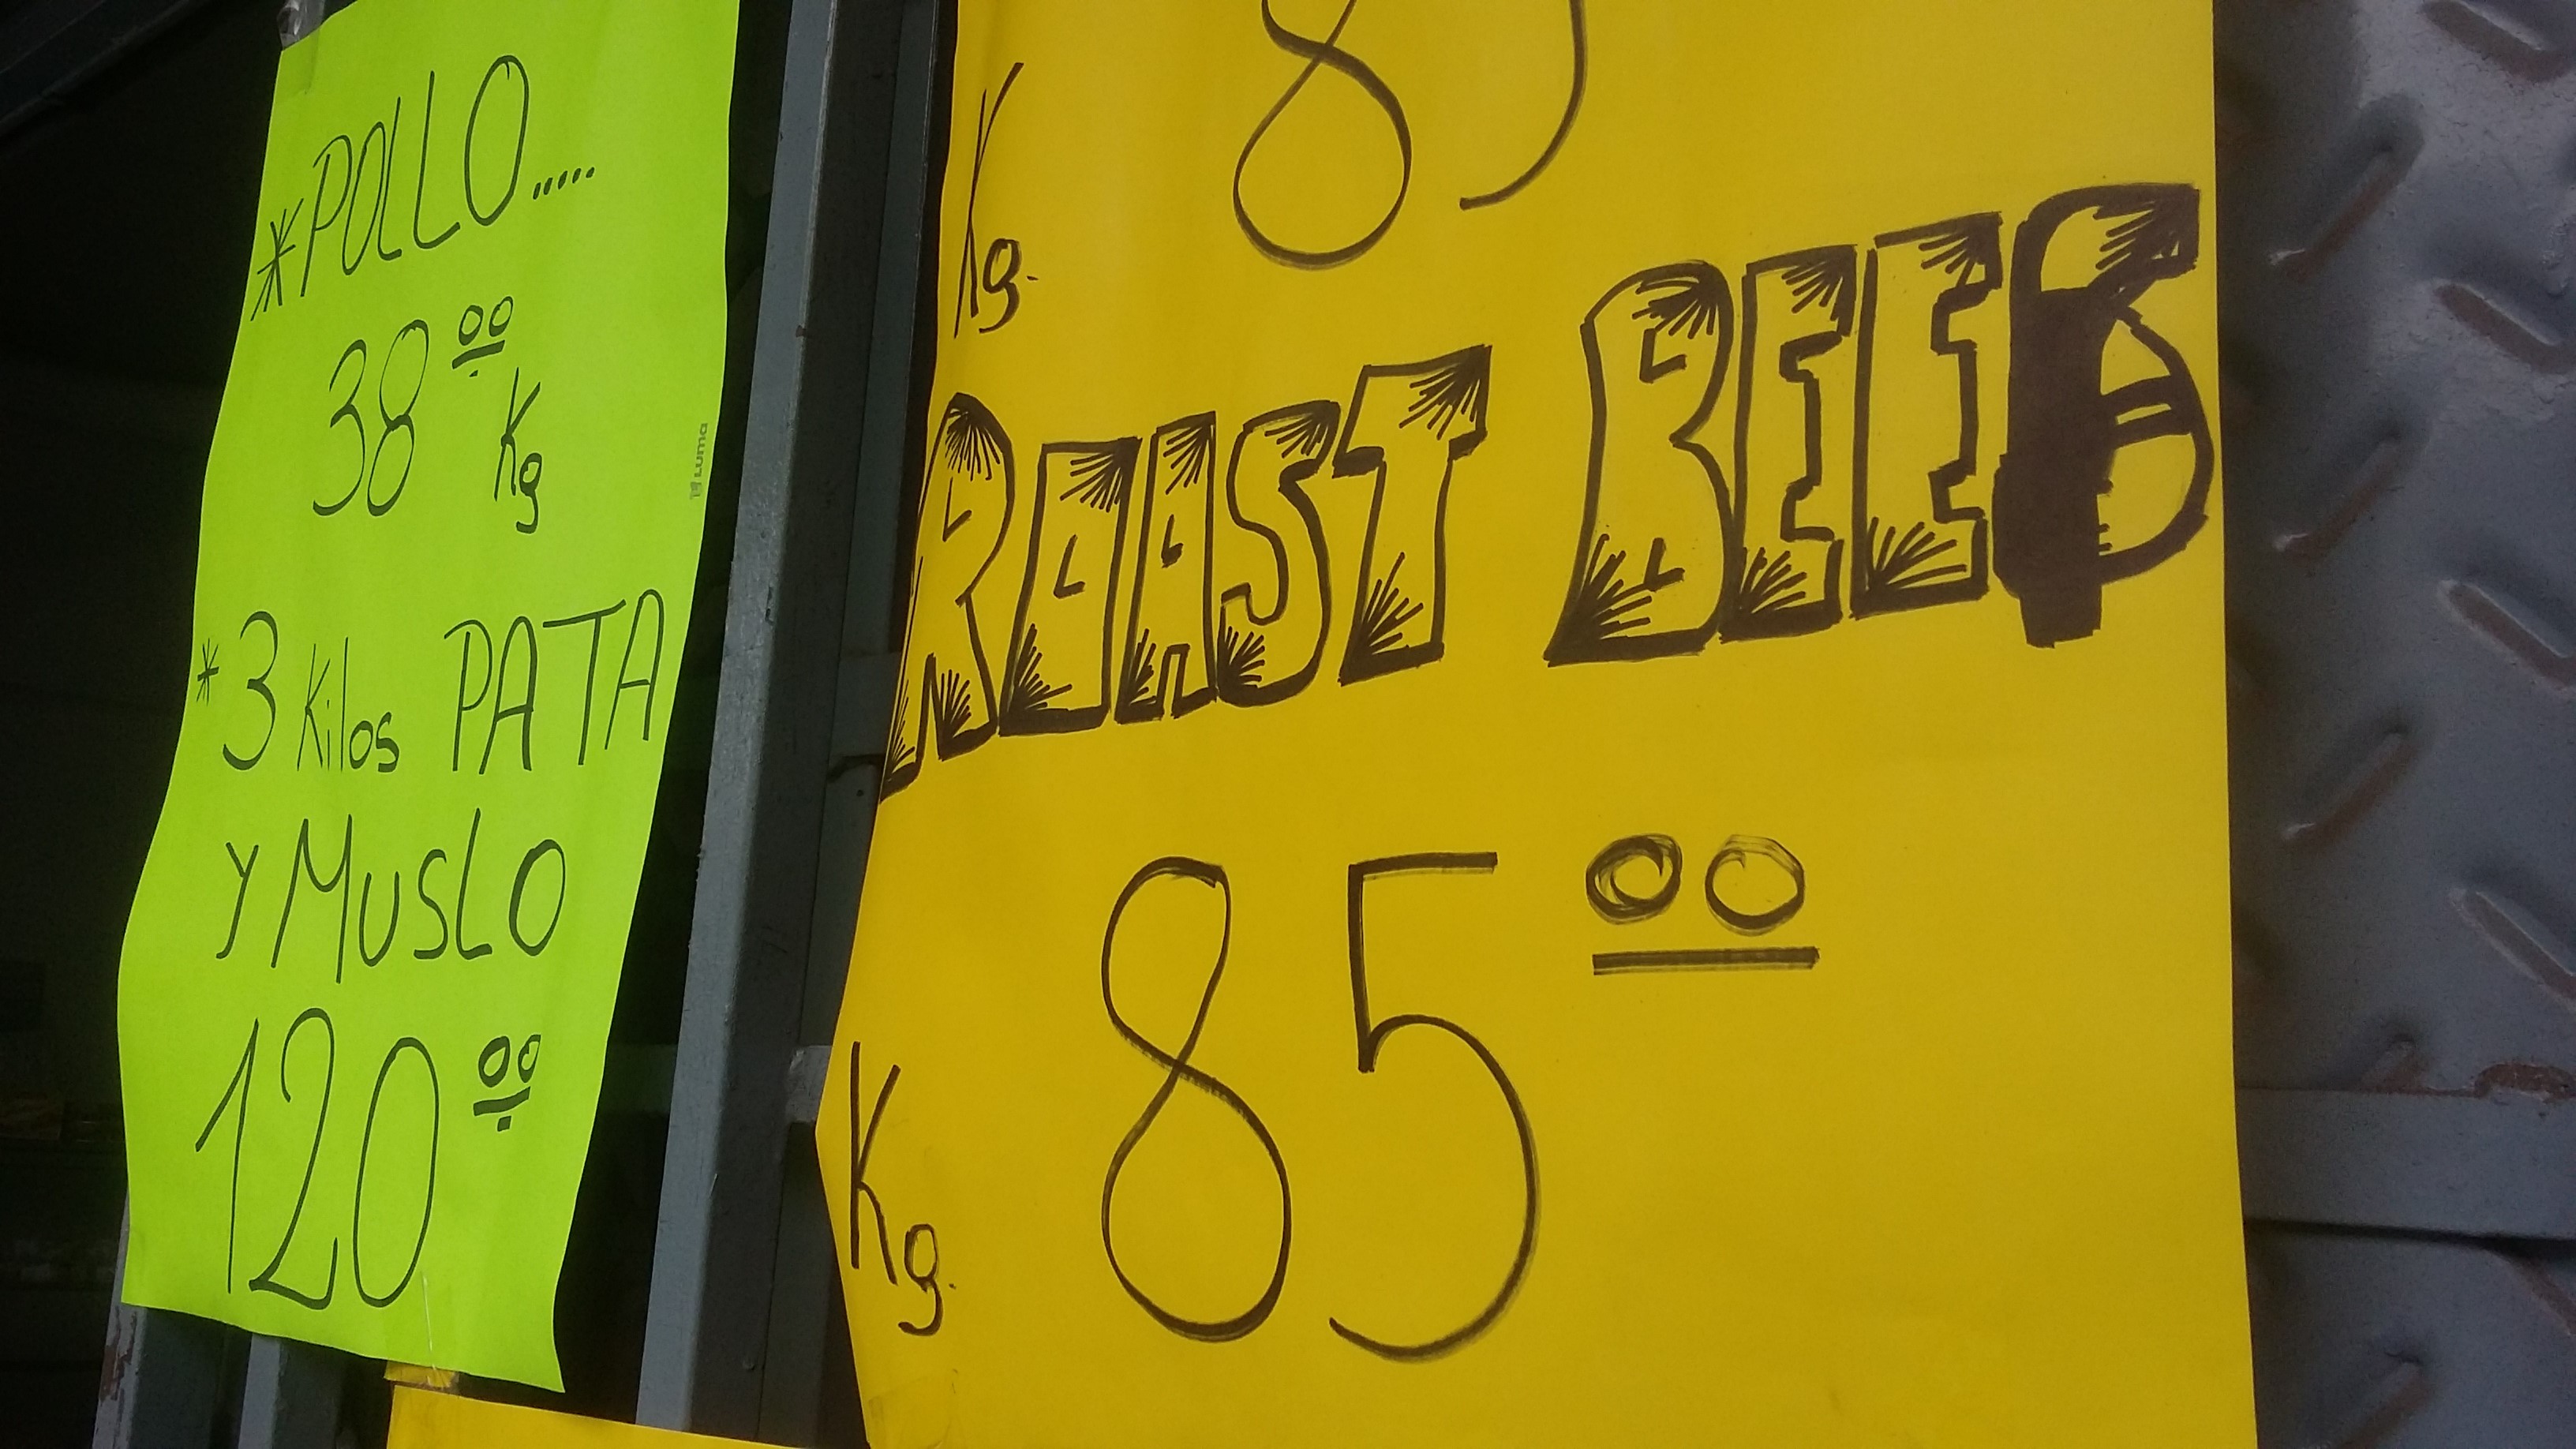 *POLLO.....
38⁰⁰
Kg
Luma
*3 Kilos PATA
Y MUSLO
120⁰⁰
Kg. 85
ROAST BEEF
Kg. 85⁰⁰